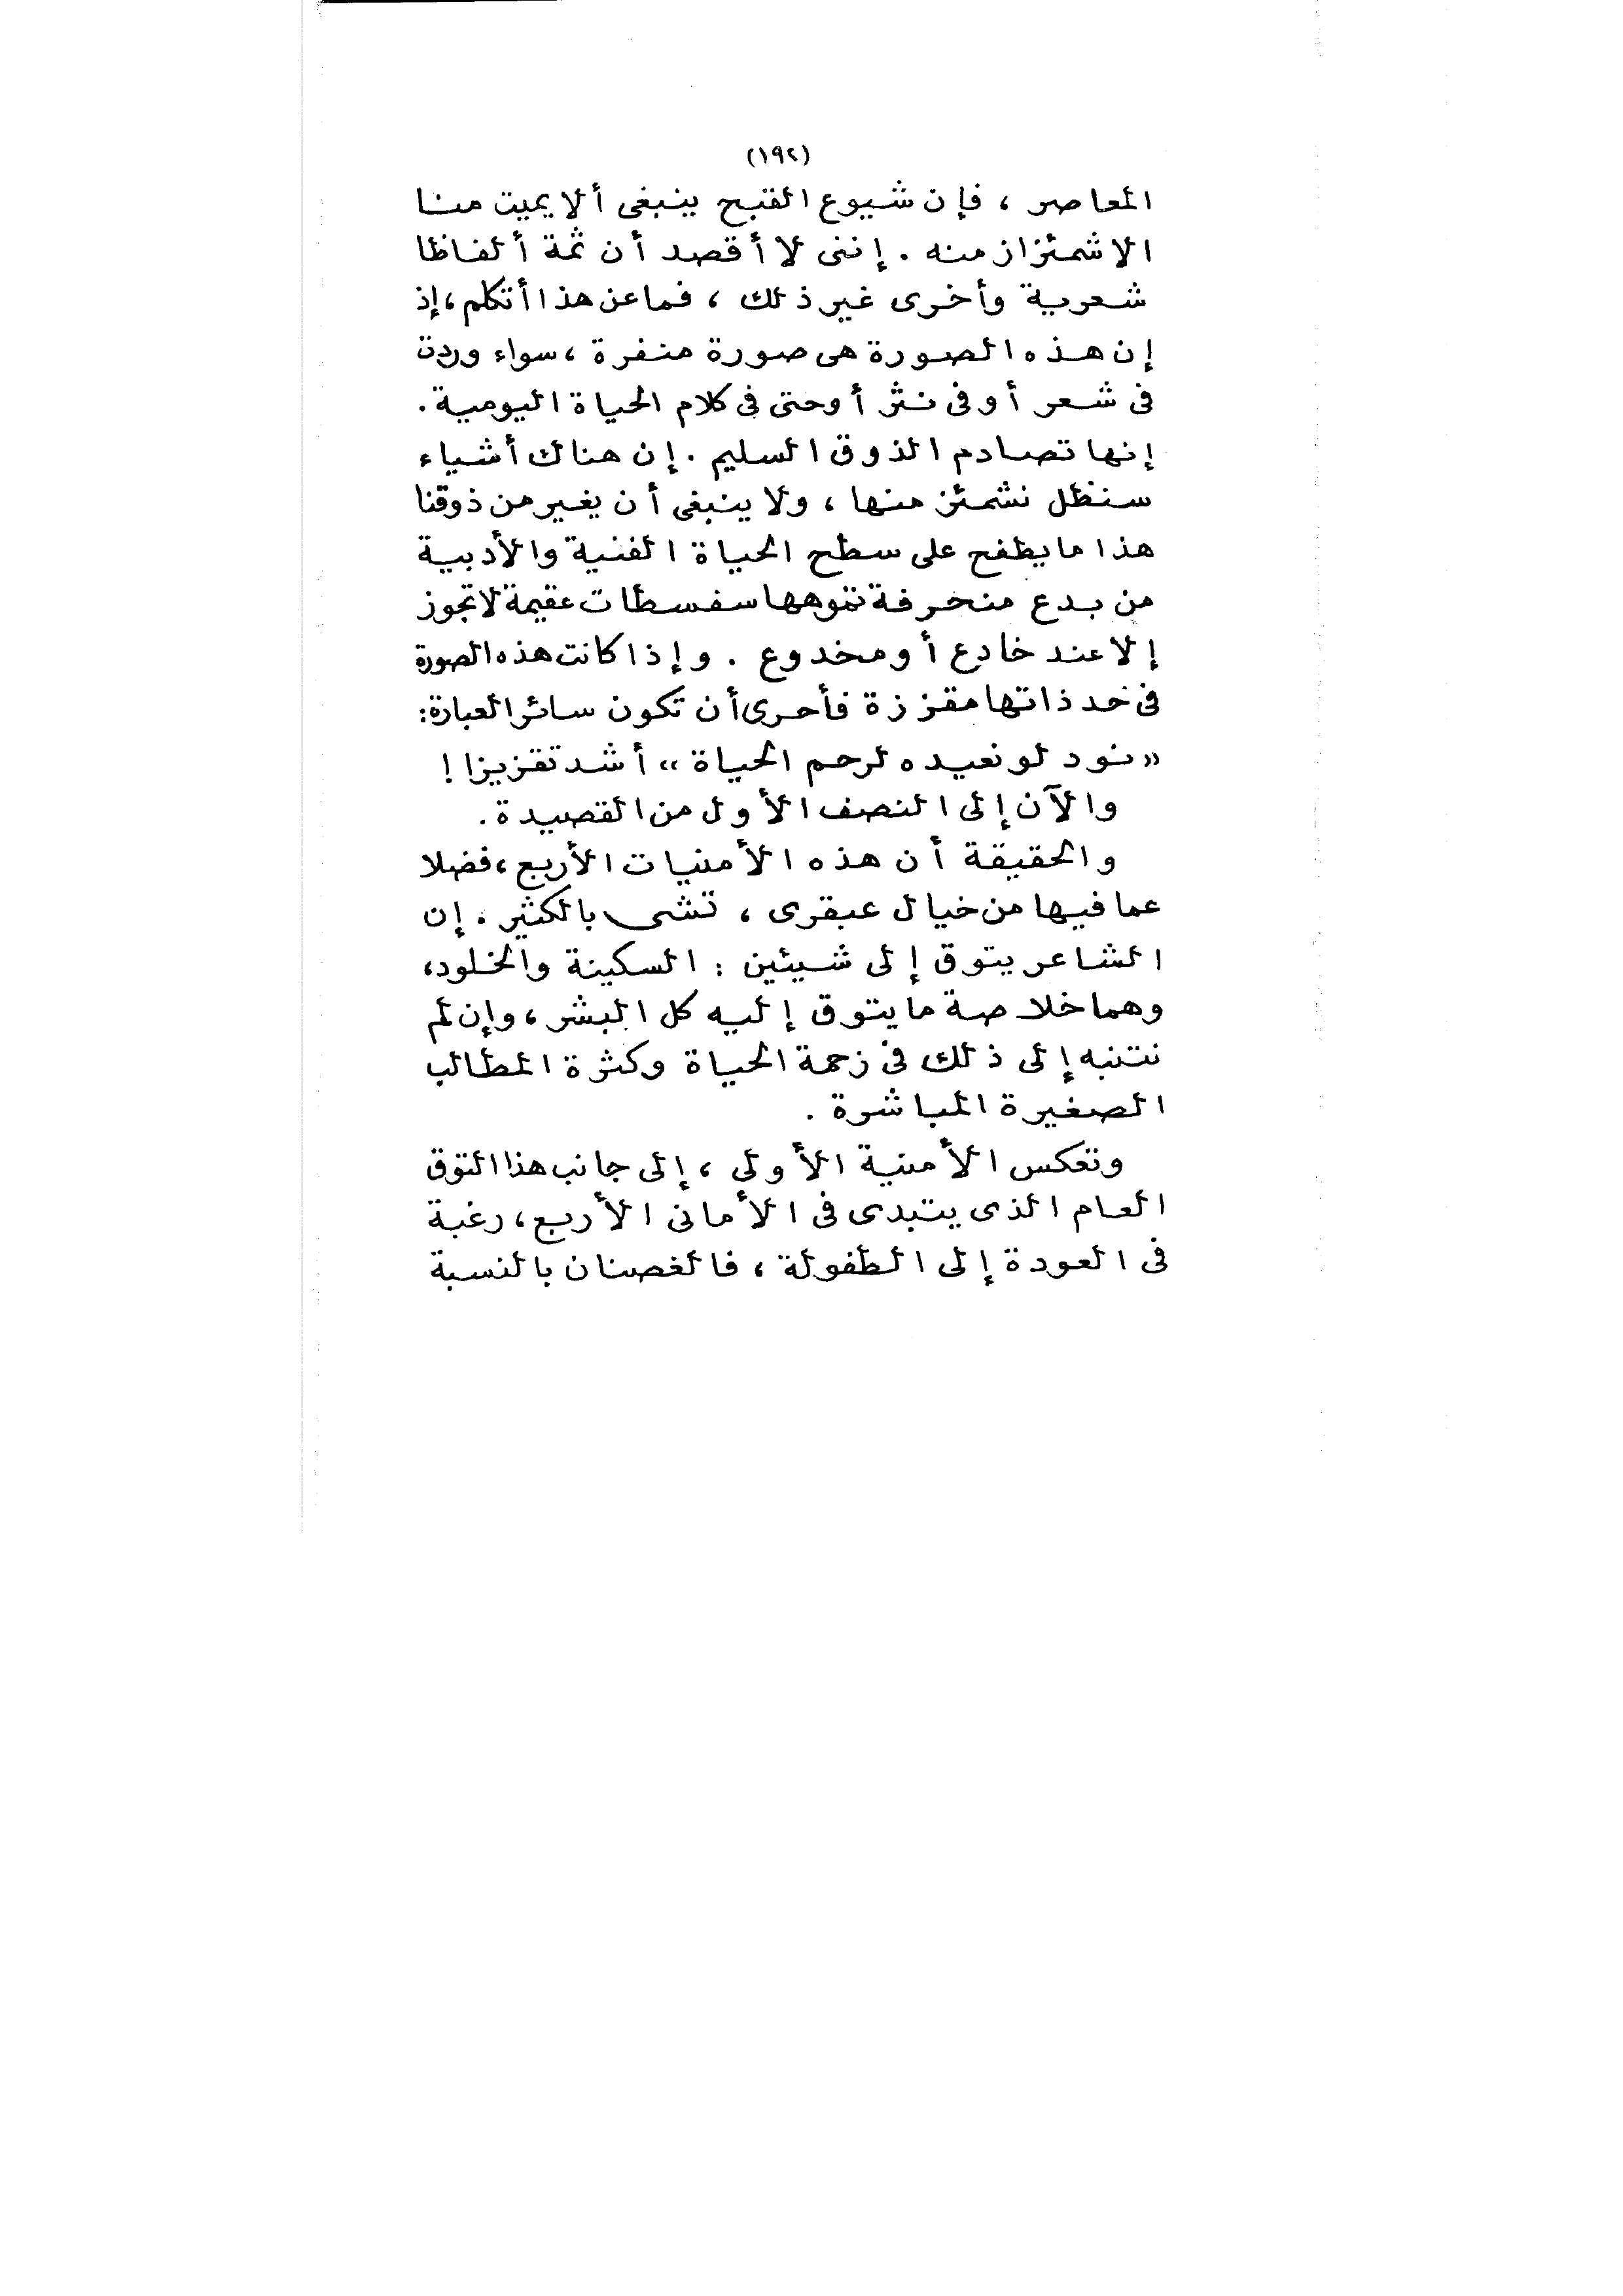 (١٩٢)
المعاصر ، فإن شيوع القبح ينبغى ألا يميت منا
الاشمئزاز منه . إننى لا أقصد أن ثمة ألفاظا
شعرية وأخرى غير ذلك ، فما عن هذا أتكلم ، إذ
إن هذه الصورة هى صورة منفرة ، سواء وردت
فى شعر أو فى نثر أو حتى فى كلام الحياة اليومية .
إنها تصادم الذوق السليم . إن هناك أشياء
سنظل نشمئز منها ، ولا ينبغى أن يغير من ذوقنا
هذا ما يطفح على سطح الحياة الفنية والأدبية
من بدع منحرفة تموهها سفسطات عقيمة لا تجوز
إلا عند خادع أو مخدوع . وإذا كانت هذه الصورة
فى حد ذاتها مقززة فأحرى أن تكون سائر العبارة :
« نود لو نعيده لرحم الحياة » أشد تقزيزا !
والآن إلى النصف الأول من القصيدة .
والحقيقة أن هذه الأمنيات الأربع ، فضلا
عما فيها من خيال عبقرى ، تشى بالكثير . إن
الشاعر يتوق إلى شيئين : السكينة والخلود ،
وهما خلاصة ما يتوق إليه كل البشر ، وإن لم
نتنبه إلى ذلك فى زحمة الحياة وكثرة المطالب
الصغيرة المباشرة .
وتعكس الأمنية الأولى ، إلى جانب هذا التوق
العام الذى يتبدى فى الأمانى الأربع ، رغبة
فى العودة إلى الطفولة ، فالغصنان بالنسبة